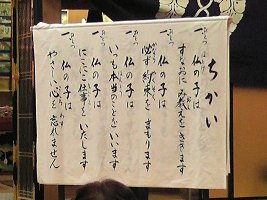 ちかい
一、仏の子は
すなおに み教えをききます
一、仏の子は
必ず 約束を まもります
一、仏の子は
いつも本当のことをいいます
一、仏の子は
にこにこ仕事を いたします
一、仏の子は
やさしい心を 忘れません